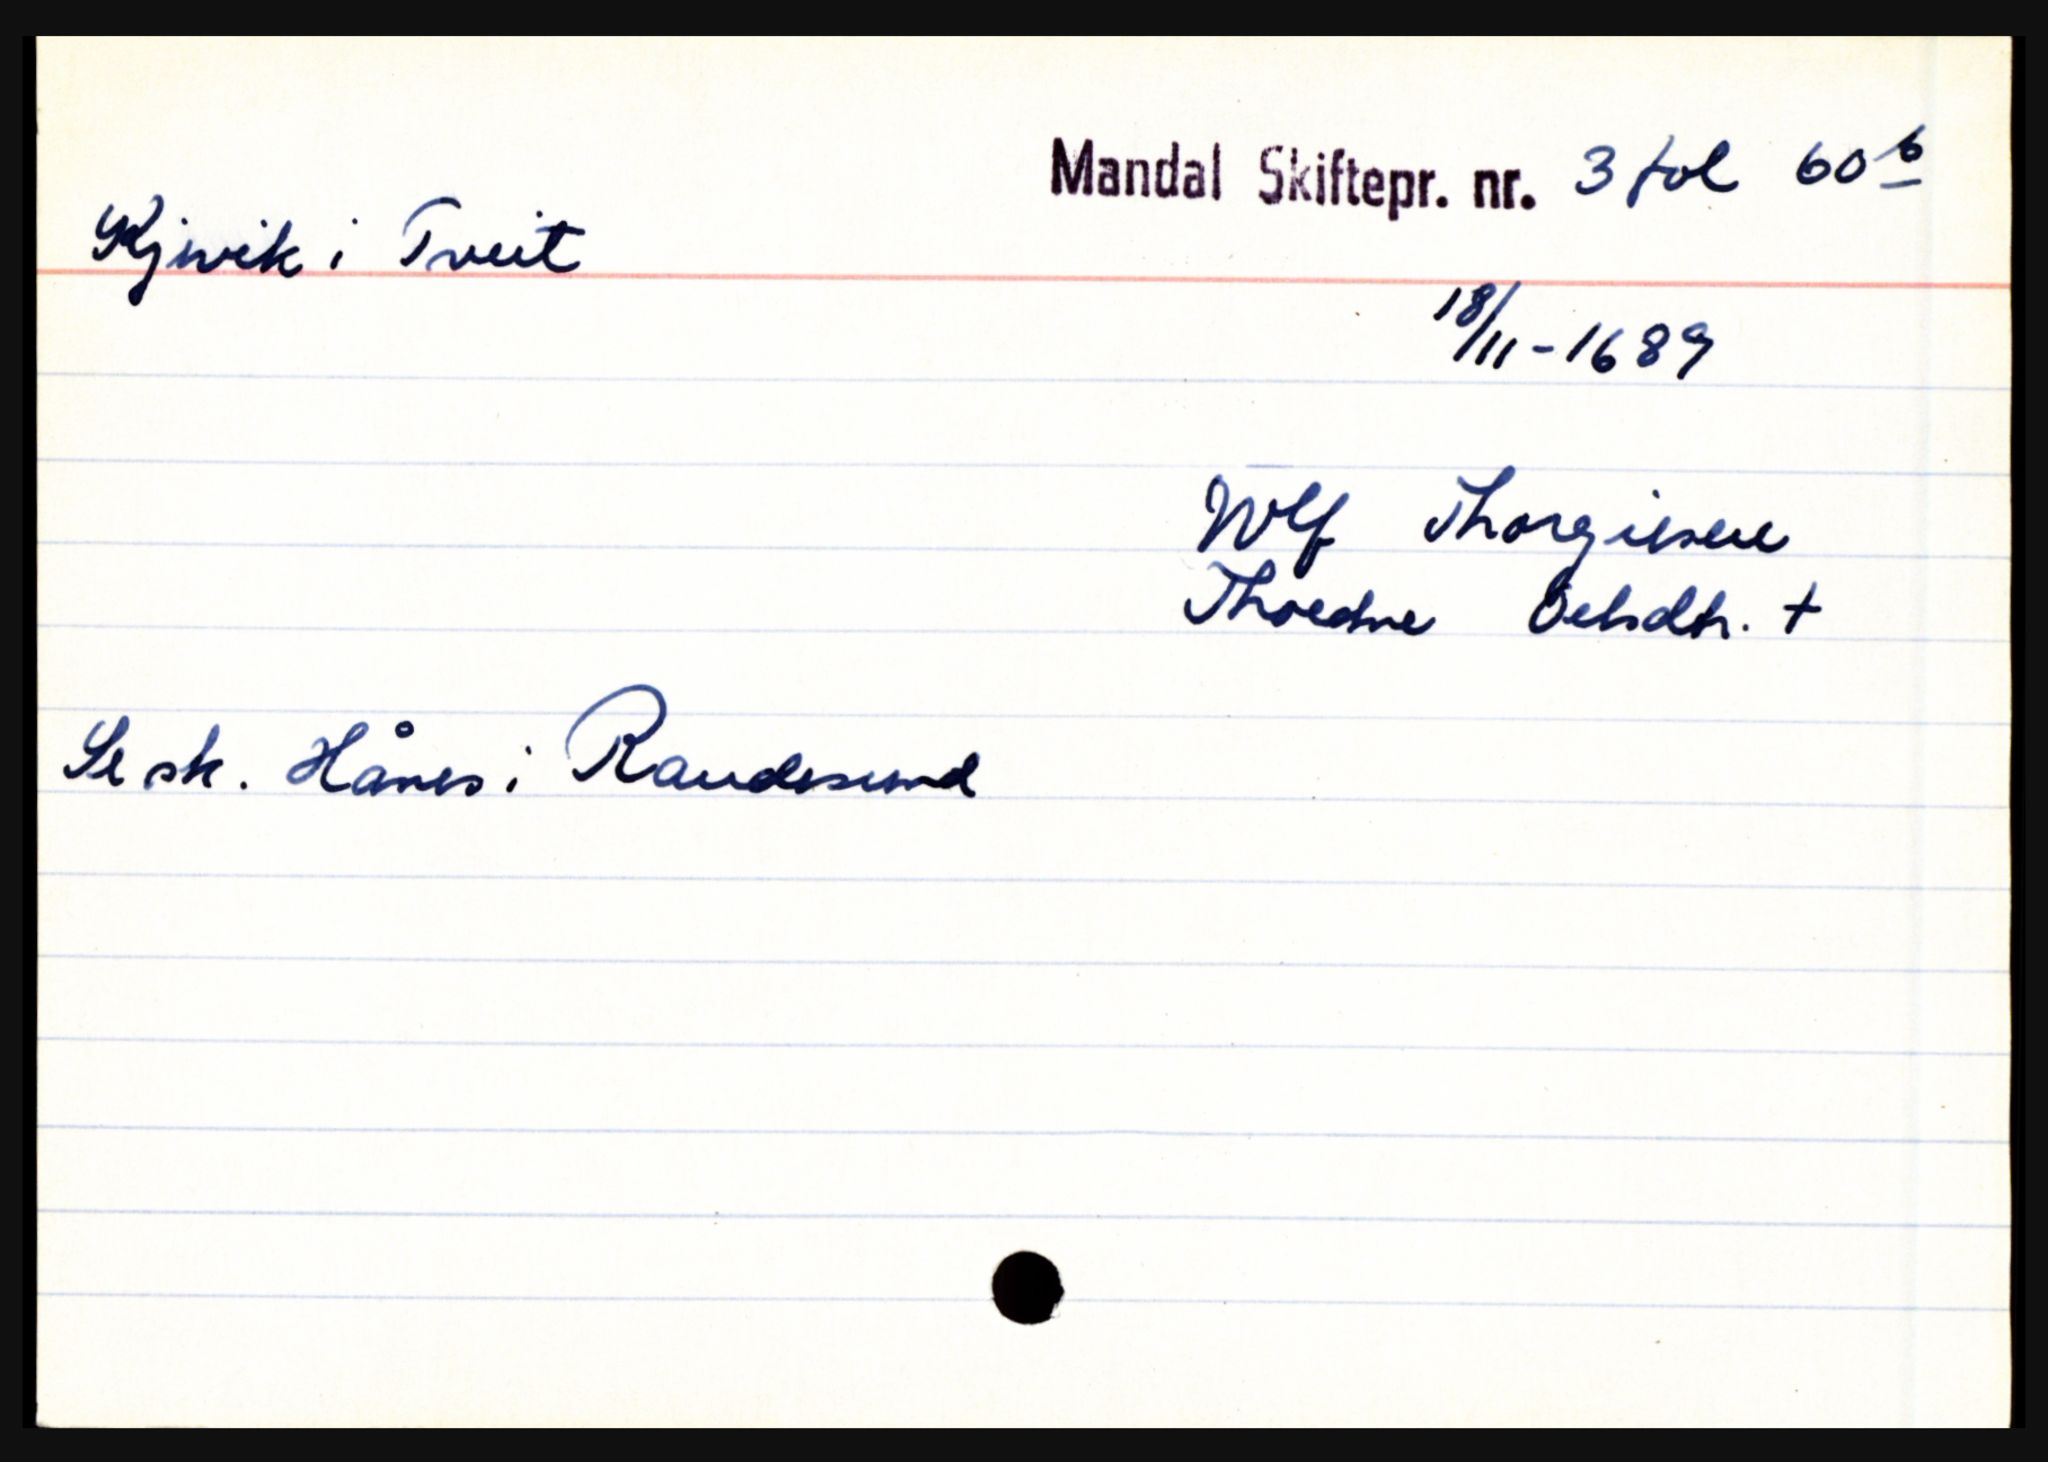 Mandal Skiftepr. nr. 3 fol 60 b
Kjivik i Tveit
18/11-1689
Wlf Thorgilsen
Oelsdtr. +
Se sk. Hånes i Randesund